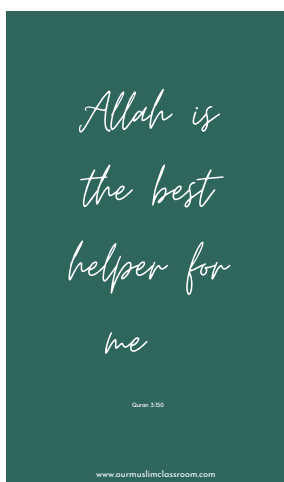 Allah is
the best
helper for
me
Quran 3:150
www.ourmuslimclassroom.com